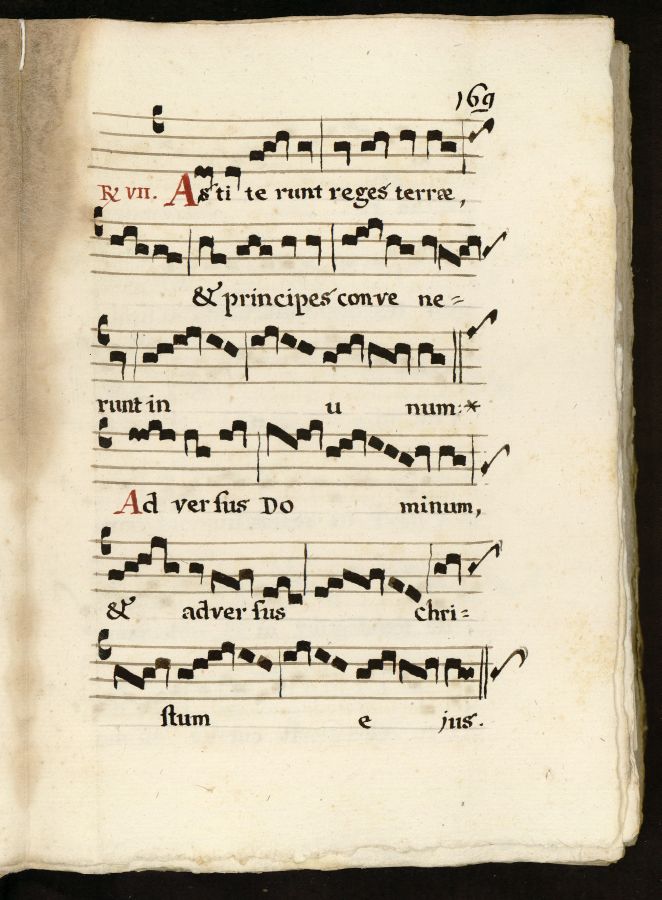 169
℟ VII. Asti te runt reges terræ,
& principes conve ne=
runt in u num:*
Ad versus Do minum,
& adversus Chri=
stum e jus.